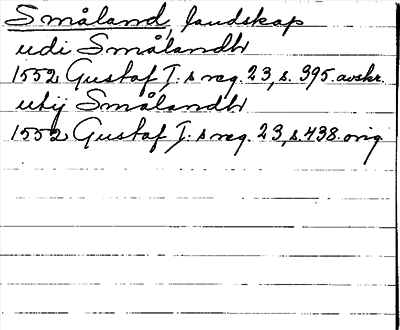 Småland, landskap
udi Smålandh
1552 Gustaf I:s reg. 23, s. 395. avskr.
utij Smålandh
1552 Gustaf I:s reg. 23, s. 438. orig